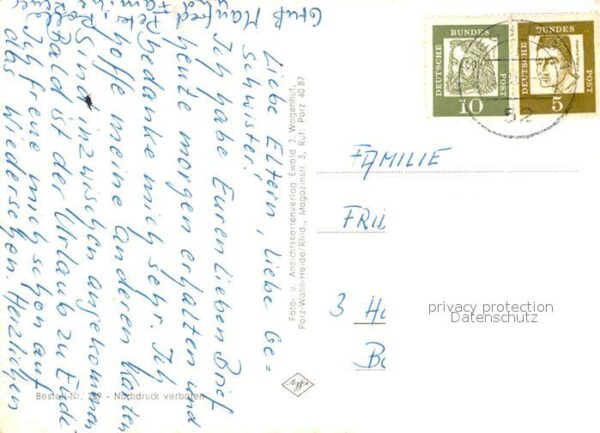 Liebe Eltern, liebe Ge-
schwister!
Ich habe Euren lieben Brief
heute morgen erhalten und
bedanke mich sehr. Ich
hoffe meine anderen Karten
sind inzwischen angekommen.
Bald ist der Urlaub zu Ende.
Ich freue mich schon auf
das Wiedersehen. Herzlichen
Gruß Manfred
und
Foto- u. Ansichtskartenverlag Ewald J. Wagenhut,
Porz-Wahn-Heide/Rhld., Magazinstr. 3, Ruf: Porz 40 87
Bestell-Nr. 219 - Nachdruck verboten
DEUTSCHE
BUNDES
POST
10
DEUTSCHE
BUNDES
POST
5
52
FAMILIE
FRI
3 H
B
privacy protection
Datenschutz